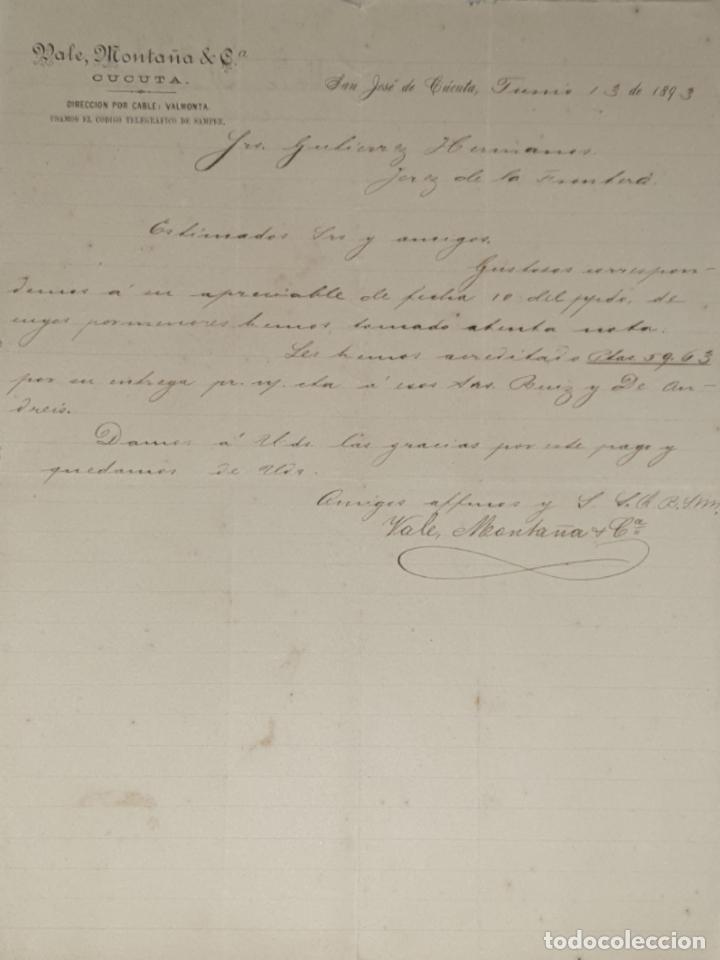 Vale, Montaña & C.ª
CUCUTA.
DIRECCION POR CABLE: VALMONTA.
USAMOS EL CODIGO TELEGRÁFICO DE SAMPER.
San José de Cúcuta, Junio 13 de 1893
Srs. Gutierrez Hermanos.
Jerez de la Frontera.
Estimados Srs y amigos.
Gustosos correspon-
demos á su apreciable de fecha 10 del ppdo, de
cuyos pormenores hemos tomado atenta nota.
Les hemos acreditado Ptas 59.63
por su entrega pr. n/. cta á esos Srs. Ruiz y De An-
dreis.
Damos á Uds las gracias por este pago y
quedamos de Uds.
Amigos affmos y S. S. Q. B. S. M.
Vale, Montaña & Cª
todocoleccion.net